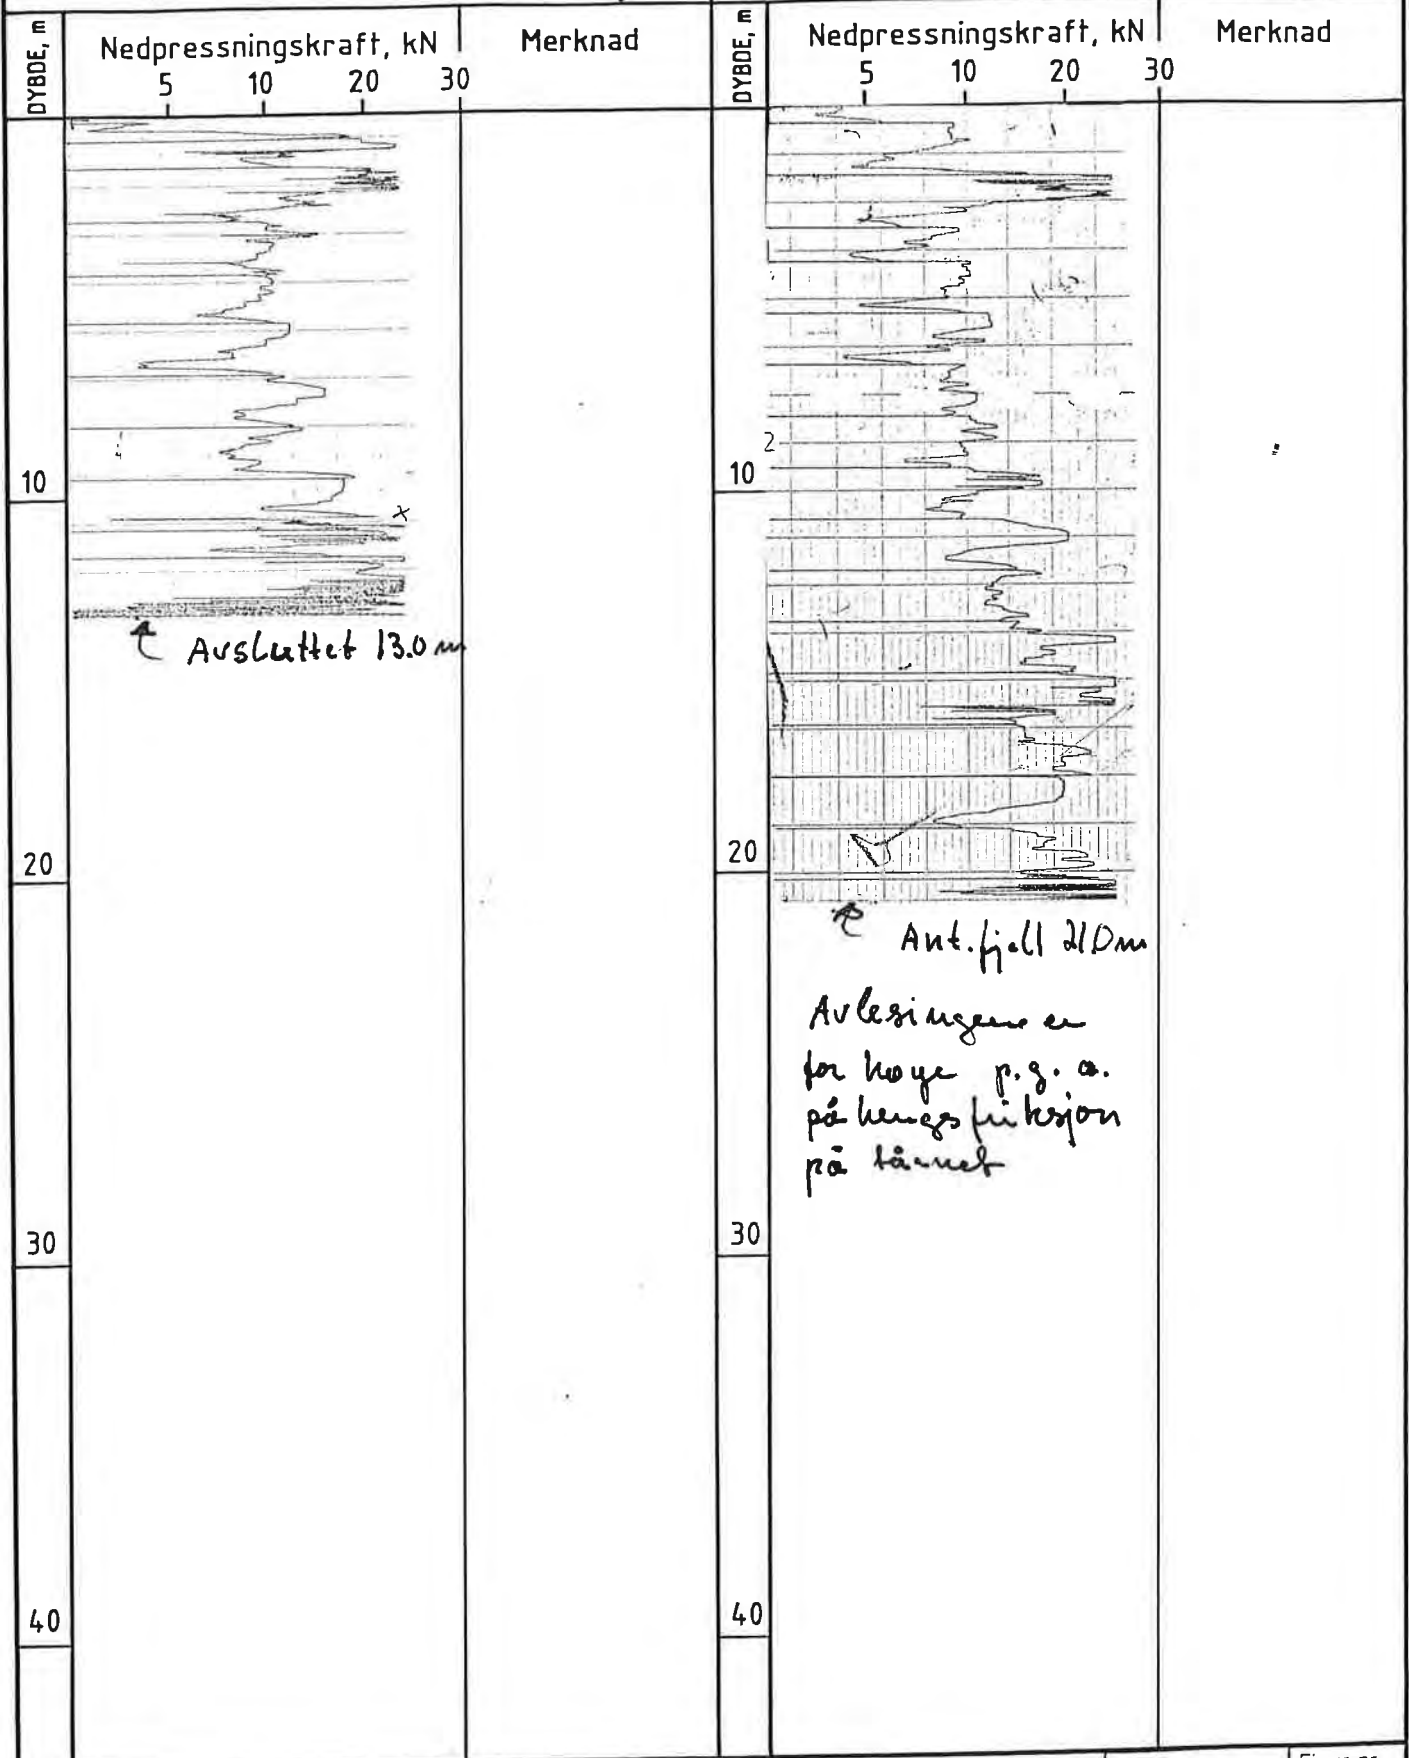 DYBDE, m
Nedpressningskraft, kN
Merknad
5 10 20 30
10
x
Avsluttet 13.0 m
20
30
40
DYBDE, m
Nedpressningskraft, kN
Merknad
5 10 20 30
2
10
20
Ant. fjell 21.0 m
Avlesingene er
for høye p.g.a.
påhengsfriksjon
på tårnet
30
40